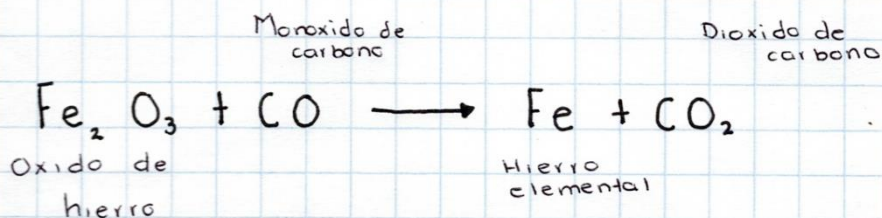 Monoxido de
carbono
Dioxido de
carbono
Fe₂ O₃ + CO → Fe + CO₂
Oxido de
hierro
Hierro
elemental